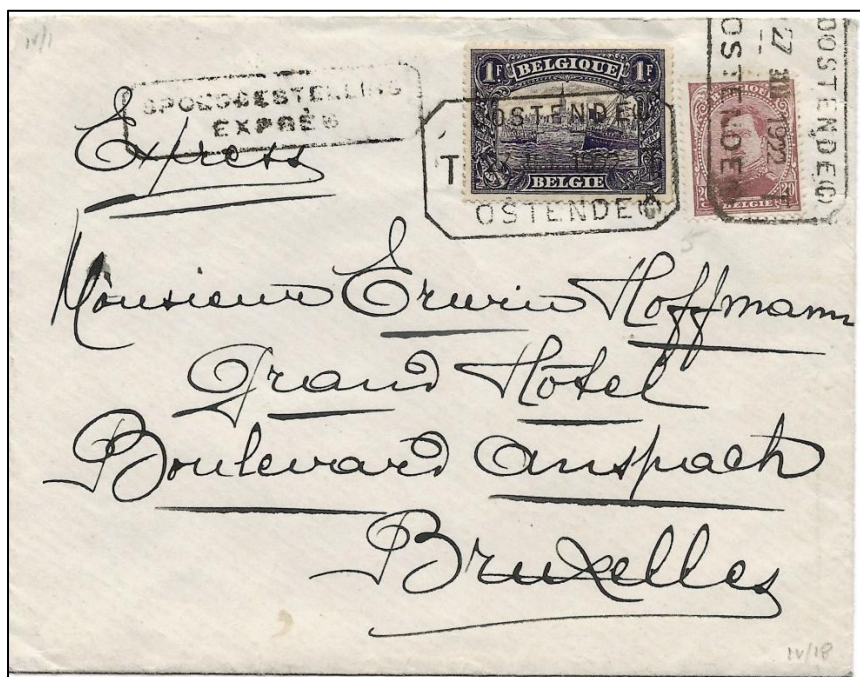 IV/1
SPOEDBESTELLING
EXPRÈS
Express
1F BELGIQUE 1F
BELGIE
OSTENDE
T 1922
OSTENDE
BELGIQUE
20 BELGIE 20
OOSTENDE
27 1922
OSTENDE
5
Monsieur Erwin Hoffmann
Grand Hôtel
Boulevard Anspach
Bruxelles
IV/18